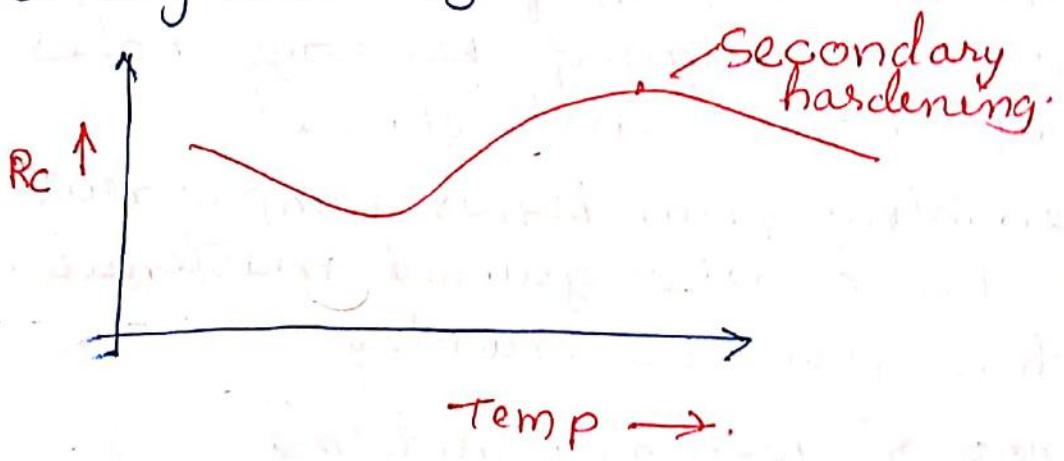 Secondary
hardening.
Rc ↑
Temp →.